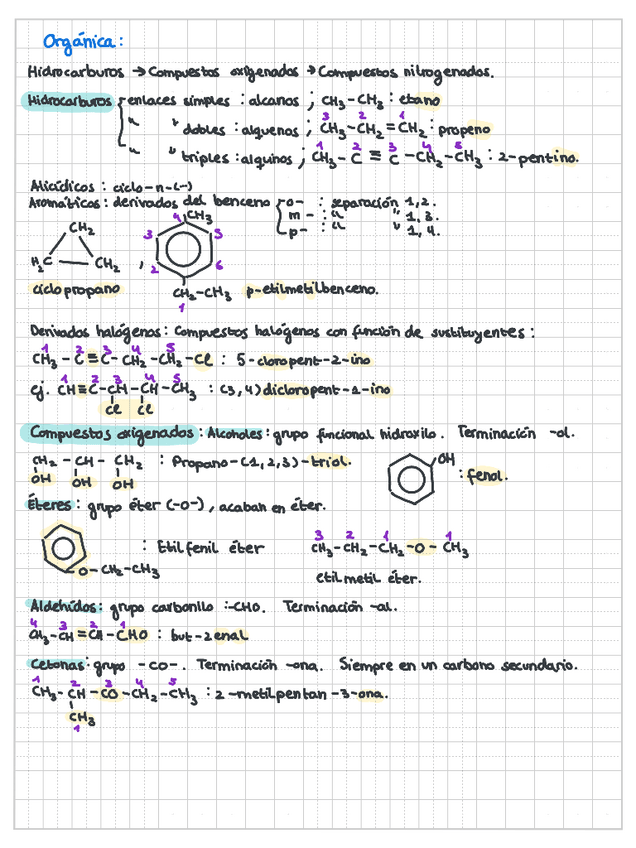 Orgánica:
Hidrocarburos → Compuestos oxigenados → Compuestos nitrogenados.
Hidrocarburos enlaces simples : alcanos ; CH₃-CH₃ : etano
3 2 1
" " dobles : alquenos ; CH₃-CH₂=CH₂ : propeno
1 2 3 4 5
" " triples : alquinos ; CH₃-C≡C-CH₂-CH₃ : 2-pentino.
Alicíclicos : ciclo-n-(-)
Aromáticos : derivados del benceno o- : separación 1,2.
m- : " " 1,3.
p- : " " 1,4.
CH₂
H₂C CH₂
ciclopropano
,
4 CH₃
3 5
2 6
CH₂-CH₃
1
p-etilmetilbenceno.
Derivados halógenos: Compuestos halógenos con función de sustituyentes :
1 2 3 4 5
CH₃-C≡C-CH₂-CH₂-Cl : 5-cloropent-2-ino
1 2 3 4 5
ej. CH≡C-CH-CH-CH₃ : (3,4) dicloropent-1-ino
Cl Cl
Compuestos oxigenados : Alcoholes : grupo funcional hidroxilo. Terminación -ol.
CH₂-CH-CH₂ : Propano-(1,2,3)-triol.
OH OH OH
OH : fenol.
Éteres : grupo éter (-O-), acaban en éter.
O-CH₂-CH₃ : Etilfenil éter
3 2 1 1
CH₃-CH₂-CH₂-O-CH₃
etilmetil éter.
Aldehídos: grupo carbonilo :-CHO. Terminación -al.
4 3 2 1
CH₃-CH=CH-CHO : but-2enal
Cetonas: grupo -CO-. Terminación -ona. Siempre en un carbono secundario.
1 2 3 4 5
CH₃-CH-CO-CH₂-CH₃ : 2-metilpentan-3-ona.
CH₃
1